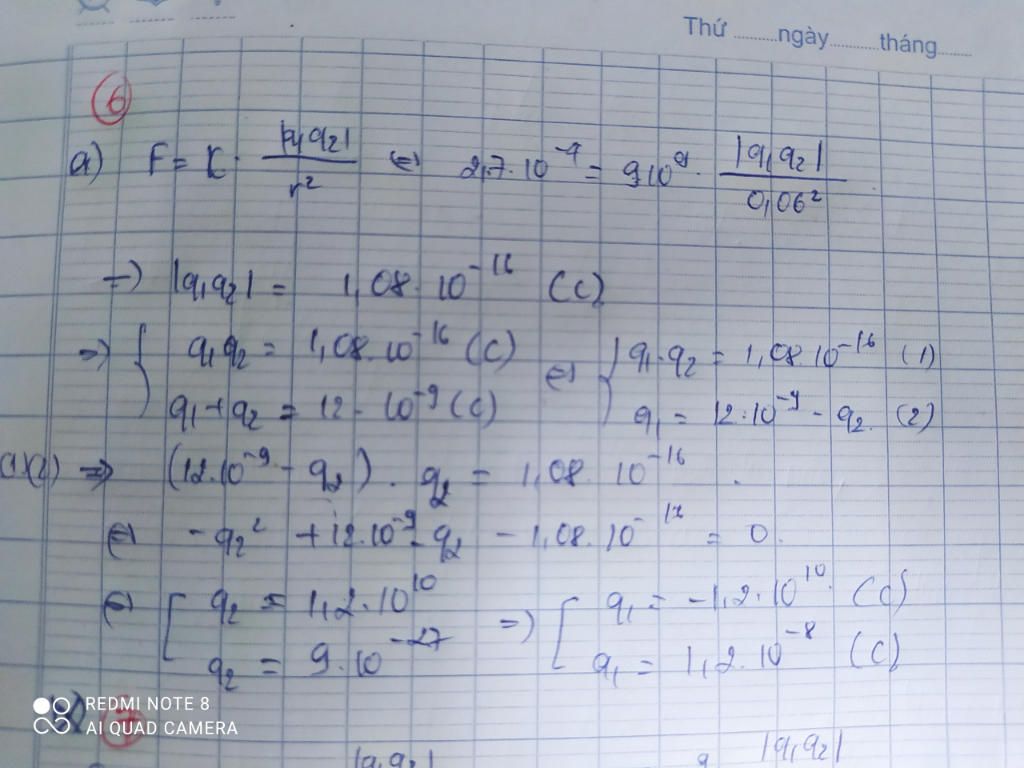 Thứ ..........ngày..........tháng.......
6
a) F = K · |q₁q₂| / r² ⇔ 2,7·10⁻⁴ = 9·10⁹ · |q₁q₂| / 0,06²
⇒ |q₁q₂| = 1,08·10⁻¹⁶ (C)
⇒ { q₁q₂ = 1,08·10⁻¹⁶ (C) ⇔ { q₁·q₂ = 1,08·10⁻¹⁶ (1)
q₁ + q₂ = 12·10⁻⁹ (C) q₁ = 12·10⁻⁹ - q₂ (2)
(1)(2) ⇒ (12·10⁻⁹ - q₂) · q₂ = 1,08·10⁻¹⁶
⇔ -q₂² + 12·10⁻⁹·q₂ - 1,08·10⁻¹² = 0
⇔ [ q₂ = 1,2·10¹⁰ ⇒ [ q₁ = -1,2·10¹⁰ (C)
q₂ = 9·10⁻²⁷ q₁ = 1,2·10⁻⁸ (C)
REDMI NOTE 8
AI QUAD CAMERA
7
|q₁q₂| 9 |q₁q₂|